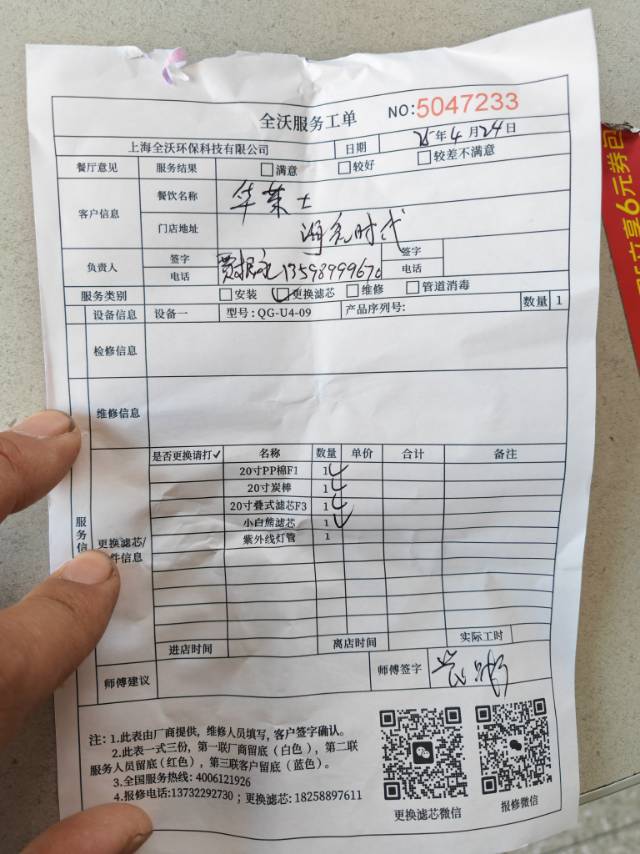 全沃服务工单 NO:5047233
上海全沃环保科技有限公司 日期 25年4月24日
餐厅意见 服务结果 满意 较好 较差不满意
客户信息 餐饮名称 华莱士
门店地址 时代
负责人 签字 签字
电话 13598999670 电话
服务类别 安装 更换滤芯 维修 管道消毒
设备信息 设备一 型号: QG-U4-09 产品序列号: 数量 1
检修信息
维修信息
服务信
更换滤芯/
件信息
是否更换请打✓ 名称 数量 单价 合计 备注
20寸PP棉F1 1 ✓
20寸炭棒 1 ✓
20寸叠式滤芯F3 1 ✓
小白熊滤芯 1 ✓
紫外线灯管 1
进店时间 离店时间 实际工时
师傅建议 师傅签字
注: 1.此表由厂商提供, 维修人员填写, 客户签字确认。
2.此表一式三份, 第一联厂商留底 (白色), 第二联
服务人员留底(红色), 第三联客户留底 (蓝色)。
3.全国服务热线: 4006121926
4.报修电话:13732292730; 更换滤芯: 18258897611
更换滤芯微信 报修微信
享6元券包